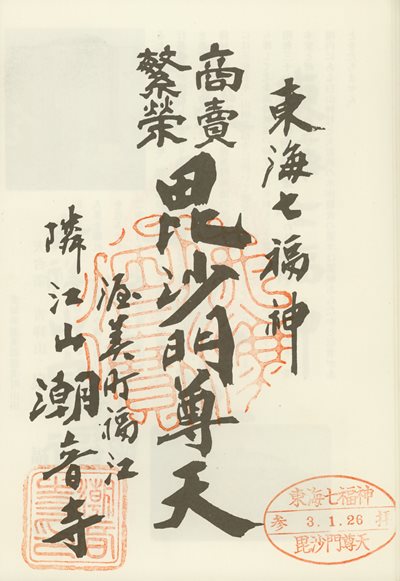 東海七福神
商賣
繁榮
毘沙門尊天
渥美町福江
隣江山潮音寺
東海七福神
参 3.1.26 拝
毘沙門尊天